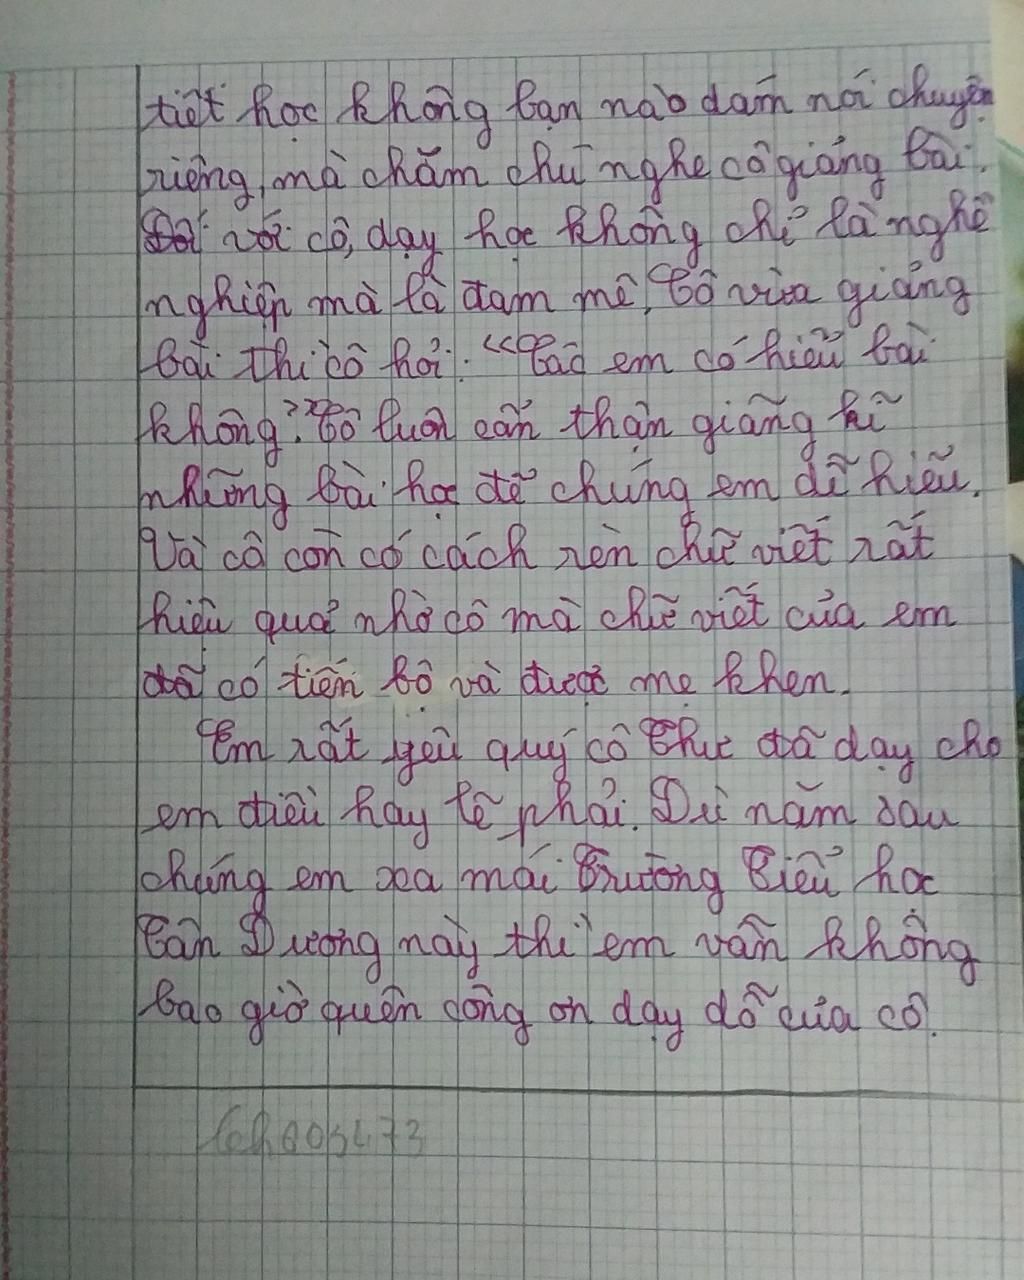 tiết học không bạn nào dám nói chuyện
riêng, mà chăm chú nghe cô giảng bài.
Đối với cô, dạy học không chỉ là nghề
nghiệp mà là đam mê, Cô vừa giảng
bài thì cô hỏi: "Các em có hiểu bài
không?" Cô luôn cẩn thận giảng kĩ
những bài học để chúng em dễ hiểu.
Và cô còn có cách rèn chữ viết rất
hiệu quả nhờ cô mà chữ viết của em
đã có tiến bộ và được mẹ khen.
Em rất yêu quý cô Thuc đã dạy cho
em điều hay lẽ phải. Dù năm sau
chúng em xa mái Trường Tiểu học
Tân Dương này thì em vẫn không
bao giờ quên công ơn dạy dỗ của cô.